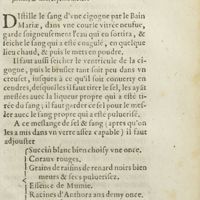 DIstille le sang d'vne cigogne par le Bain
Mariæ, dans vne courte vitrée neufue,
garde soigneusement l'eau qui en sortira, &
seiche le sang qui a esté coagulé, en quelque
lieu chaud, & puis le mets en poudre.
Il faut aussi seicher le ventricule de la ci-
gogne, puis le brusler tant soit peu dans vn
creuset, iusques à ce qu'il soit conuerty en
cendres, desquelles il faut tirer le sel, les ayãt
meslées auec la liqueur propre qui a esté ti-
rée du sang; il faut garder ce sel pour le mes-
ler auec le sang propre qui a esté puluerisé.
A ce meslange de sel & sang (apres qu'on
les a mis dans vn verre assez capable) il faut
adjouster
Succin blanc bien choisy vne once.
Coraux rouges.
Grains de raisins de renard noirs bien
meurs & secs puluerisez.
Essence de Mumie.
Racines d'Anthora ans demy once.